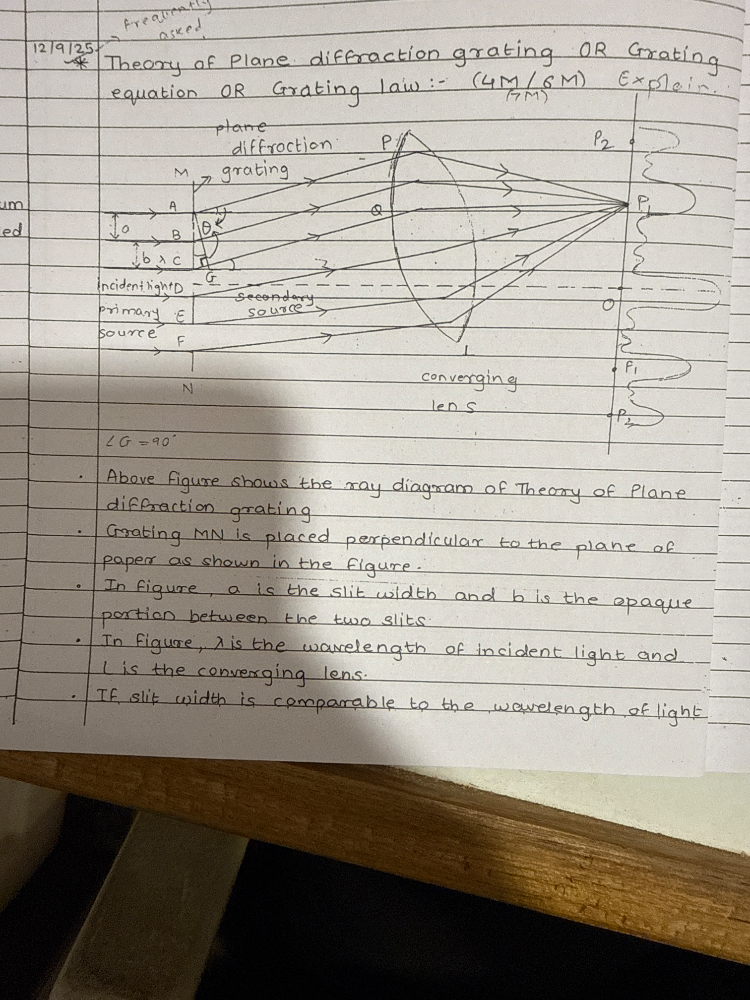 frequently
asked
12/9/25
* Theory of Plane diffraction grating OR Grating
equation OR Grating law:- (4M/6M) Explain.
(7M)
plane
diffraction
grating
P
P2
M
A
P1
um
a
θ
Q
B
ed
b λ C
G
incident light D
secondary
source
primary
E
O
source
F
P1
L
converging
lens
N
P2
∠G = 90°
· Above figure shows the ray diagram of Theory of Plane
diffraction grating
· Grating MN is placed perpendicular to the plane of
paper as shown in the figure.
· In figure, a is the slit width and b is the opaque
portion between the two slits.
· In figure, λ is the wavelength of incident light and
L is the converging lens.
· If slit width is comparable to the wavelength of light